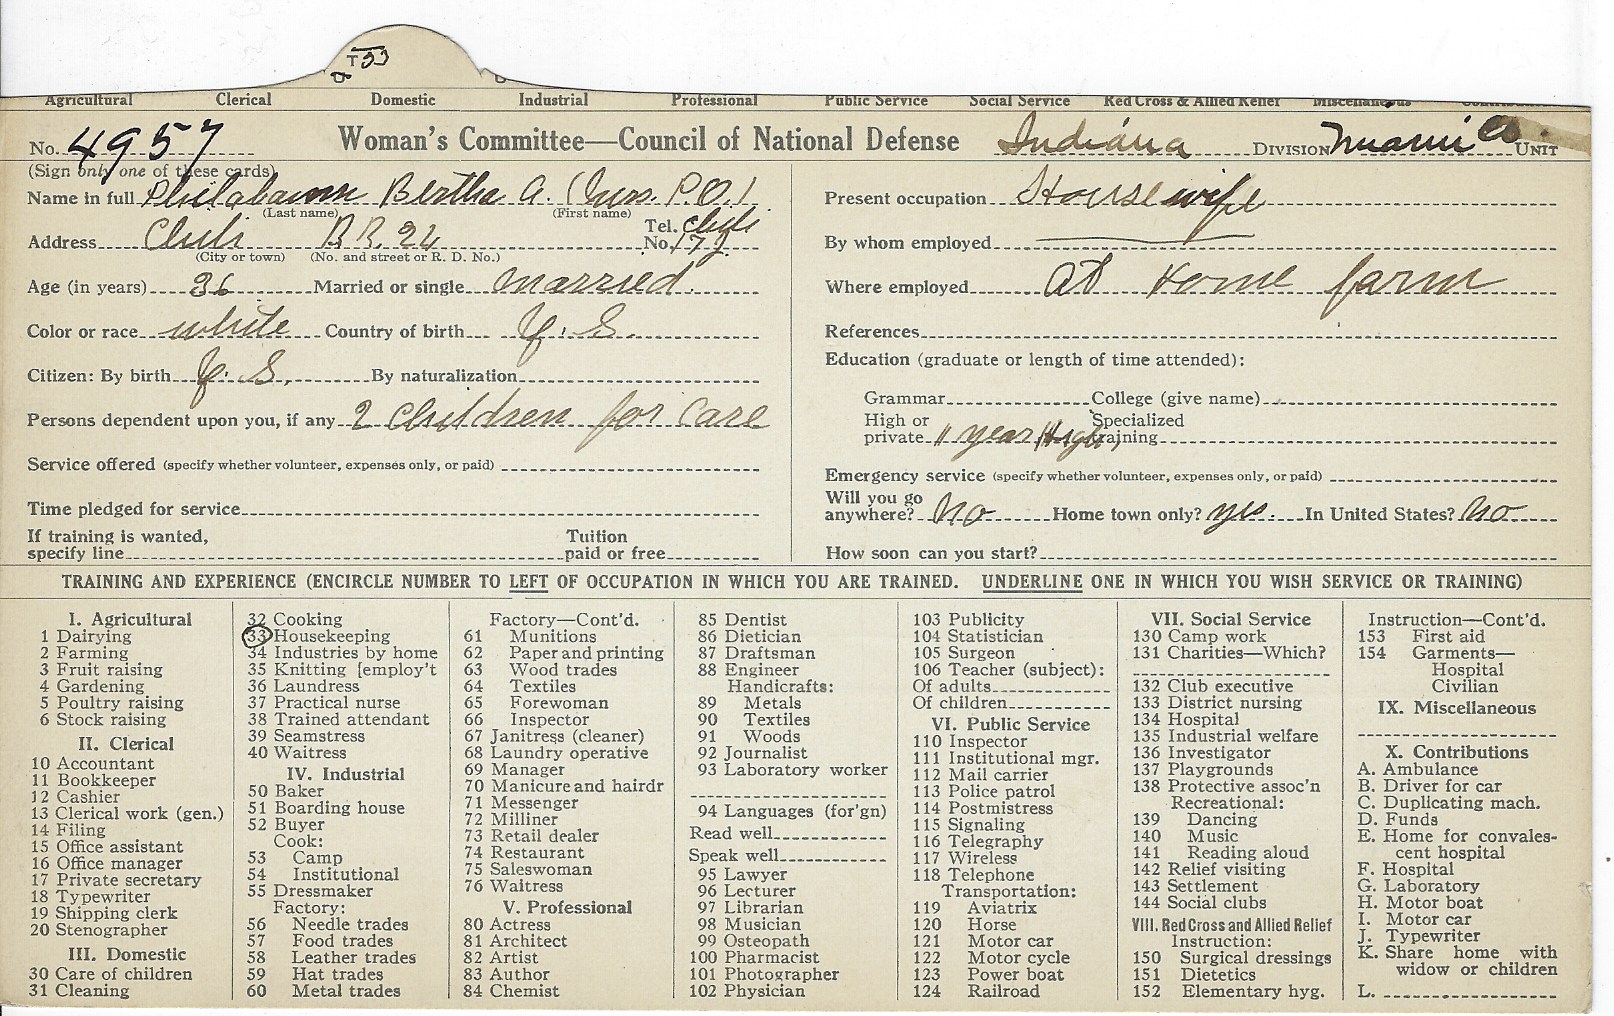 T 33
Agricultural Clerical Domestic Industrial Professional Public Service Social Service Red Cross & Allied Relief Miscellaneous
No. 4957 Woman's Committee—Council of National Defense Indiana DIVISION Miami Co. UNIT
(Sign only one of these cards)
Name in full Philabaum Bertha A. (Mrs. P.O.)
(Last name) (First name)
Address Chili R R. 24 Tel. No. Chili 172
(City or town) (No. and street or R. D. No.)
Age (in years) 36 Married or single married.
Color or race white Country of birth U. S.
Citizen: By birth U. S. By naturalization
Persons dependent upon you, if any 2 Children for Care
Service offered (specify whether volunteer, expenses only, or paid)
Time pledged for service
If training is wanted, specify line Tuition paid or free
Present occupation Housewife
By whom employed
Where employed at Home farm
References
Education (graduate or length of time attended):
Grammar College (give name)
High or private 11 year High Specialized training
Emergency service (specify whether volunteer, expenses only, or paid)
Will you go anywhere? No Home town only? yes. In United States? No
How soon can you start?
TRAINING AND EXPERIENCE (ENCIRCLE NUMBER TO LEFT OF OCCUPATION IN WHICH YOU ARE TRAINED. UNDERLINE ONE IN WHICH YOU WISH SERVICE OR TRAINING)
I. Agricultural
1 Dairying
2 Farming
3 Fruit raising
4 Gardening
5 Poultry raising
6 Stock raising
II. Clerical
10 Accountant
11 Bookkeeper
12 Cashier
13 Clerical work (gen.)
14 Filing
15 Office assistant
16 Office manager
17 Private secretary
18 Typewriter
19 Shipping clerk
20 Stenographer
III. Domestic
30 Care of children
31 Cleaning
32 Cooking
33 Housekeeping
34 Industries by home
35 Knitting [employ't
36 Laundress
37 Practical nurse
38 Trained attendant
39 Seamstress
40 Waitress
IV. Industrial
50 Baker
51 Boarding house
52 Buyer
Cook:
53 Camp
54 Institutional
55 Dressmaker
Factory:
56 Needle trades
57 Food trades
58 Leather trades
59 Hat trades
60 Metal trades
Factory—Cont'd.
61 Munitions
62 Paper and printing
63 Wood trades
64 Textiles
65 Forewoman
66 Inspector
67 Janitress (cleaner)
68 Laundry operative
69 Manager
70 Manicure and hairdr
71 Messenger
72 Milliner
73 Retail dealer
74 Restaurant
75 Saleswoman
76 Waitress
V. Professional
80 Actress
81 Architect
82 Artist
83 Author
84 Chemist
85 Dentist
86 Dietician
87 Draftsman
88 Engineer
Handicrafts:
89 Metals
90 Textiles
91 Woods
92 Journalist
93 Laboratory worker
94 Languages (for'gn)
Read well
Speak well
95 Lawyer
96 Lecturer
97 Librarian
98 Musician
99 Osteopath
100 Pharmacist
101 Photographer
102 Physician
103 Publicity
104 Statistician
105 Surgeon
106 Teacher (subject):
Of adults
Of children
VI. Public Service
110 Inspector
111 Institutional mgr.
112 Mail carrier
113 Police patrol
114 Postmistress
115 Signaling
116 Telegraphy
117 Wireless
118 Telephone
Transportation:
119 Aviatrix
120 Horse
121 Motor car
122 Motor cycle
123 Power boat
124 Railroad
VII. Social Service
130 Camp work
131 Charities—Which?
132 Club executive
133 District nursing
134 Hospital
135 Industrial welfare
136 Investigator
137 Playgrounds
138 Protective assoc'n
Recreational:
139 Dancing
140 Music
141 Reading aloud
142 Relief visiting
143 Settlement
144 Social clubs
VIII. Red Cross and Allied Relief
Instruction:
150 Surgical dressings
151 Dietetics
152 Elementary hyg.
Instruction—Cont'd.
153 First aid
154 Garments—
Hospital
Civilian
IX. Miscellaneous
X. Contributions
A. Ambulance
B. Driver for car
C. Duplicating mach.
D. Funds
E. Home for convales-
cent hospital
F. Hospital
G. Laboratory
H. Motor boat
I. Motor car
J. Typewriter
K. Share home with
widow or children
L.